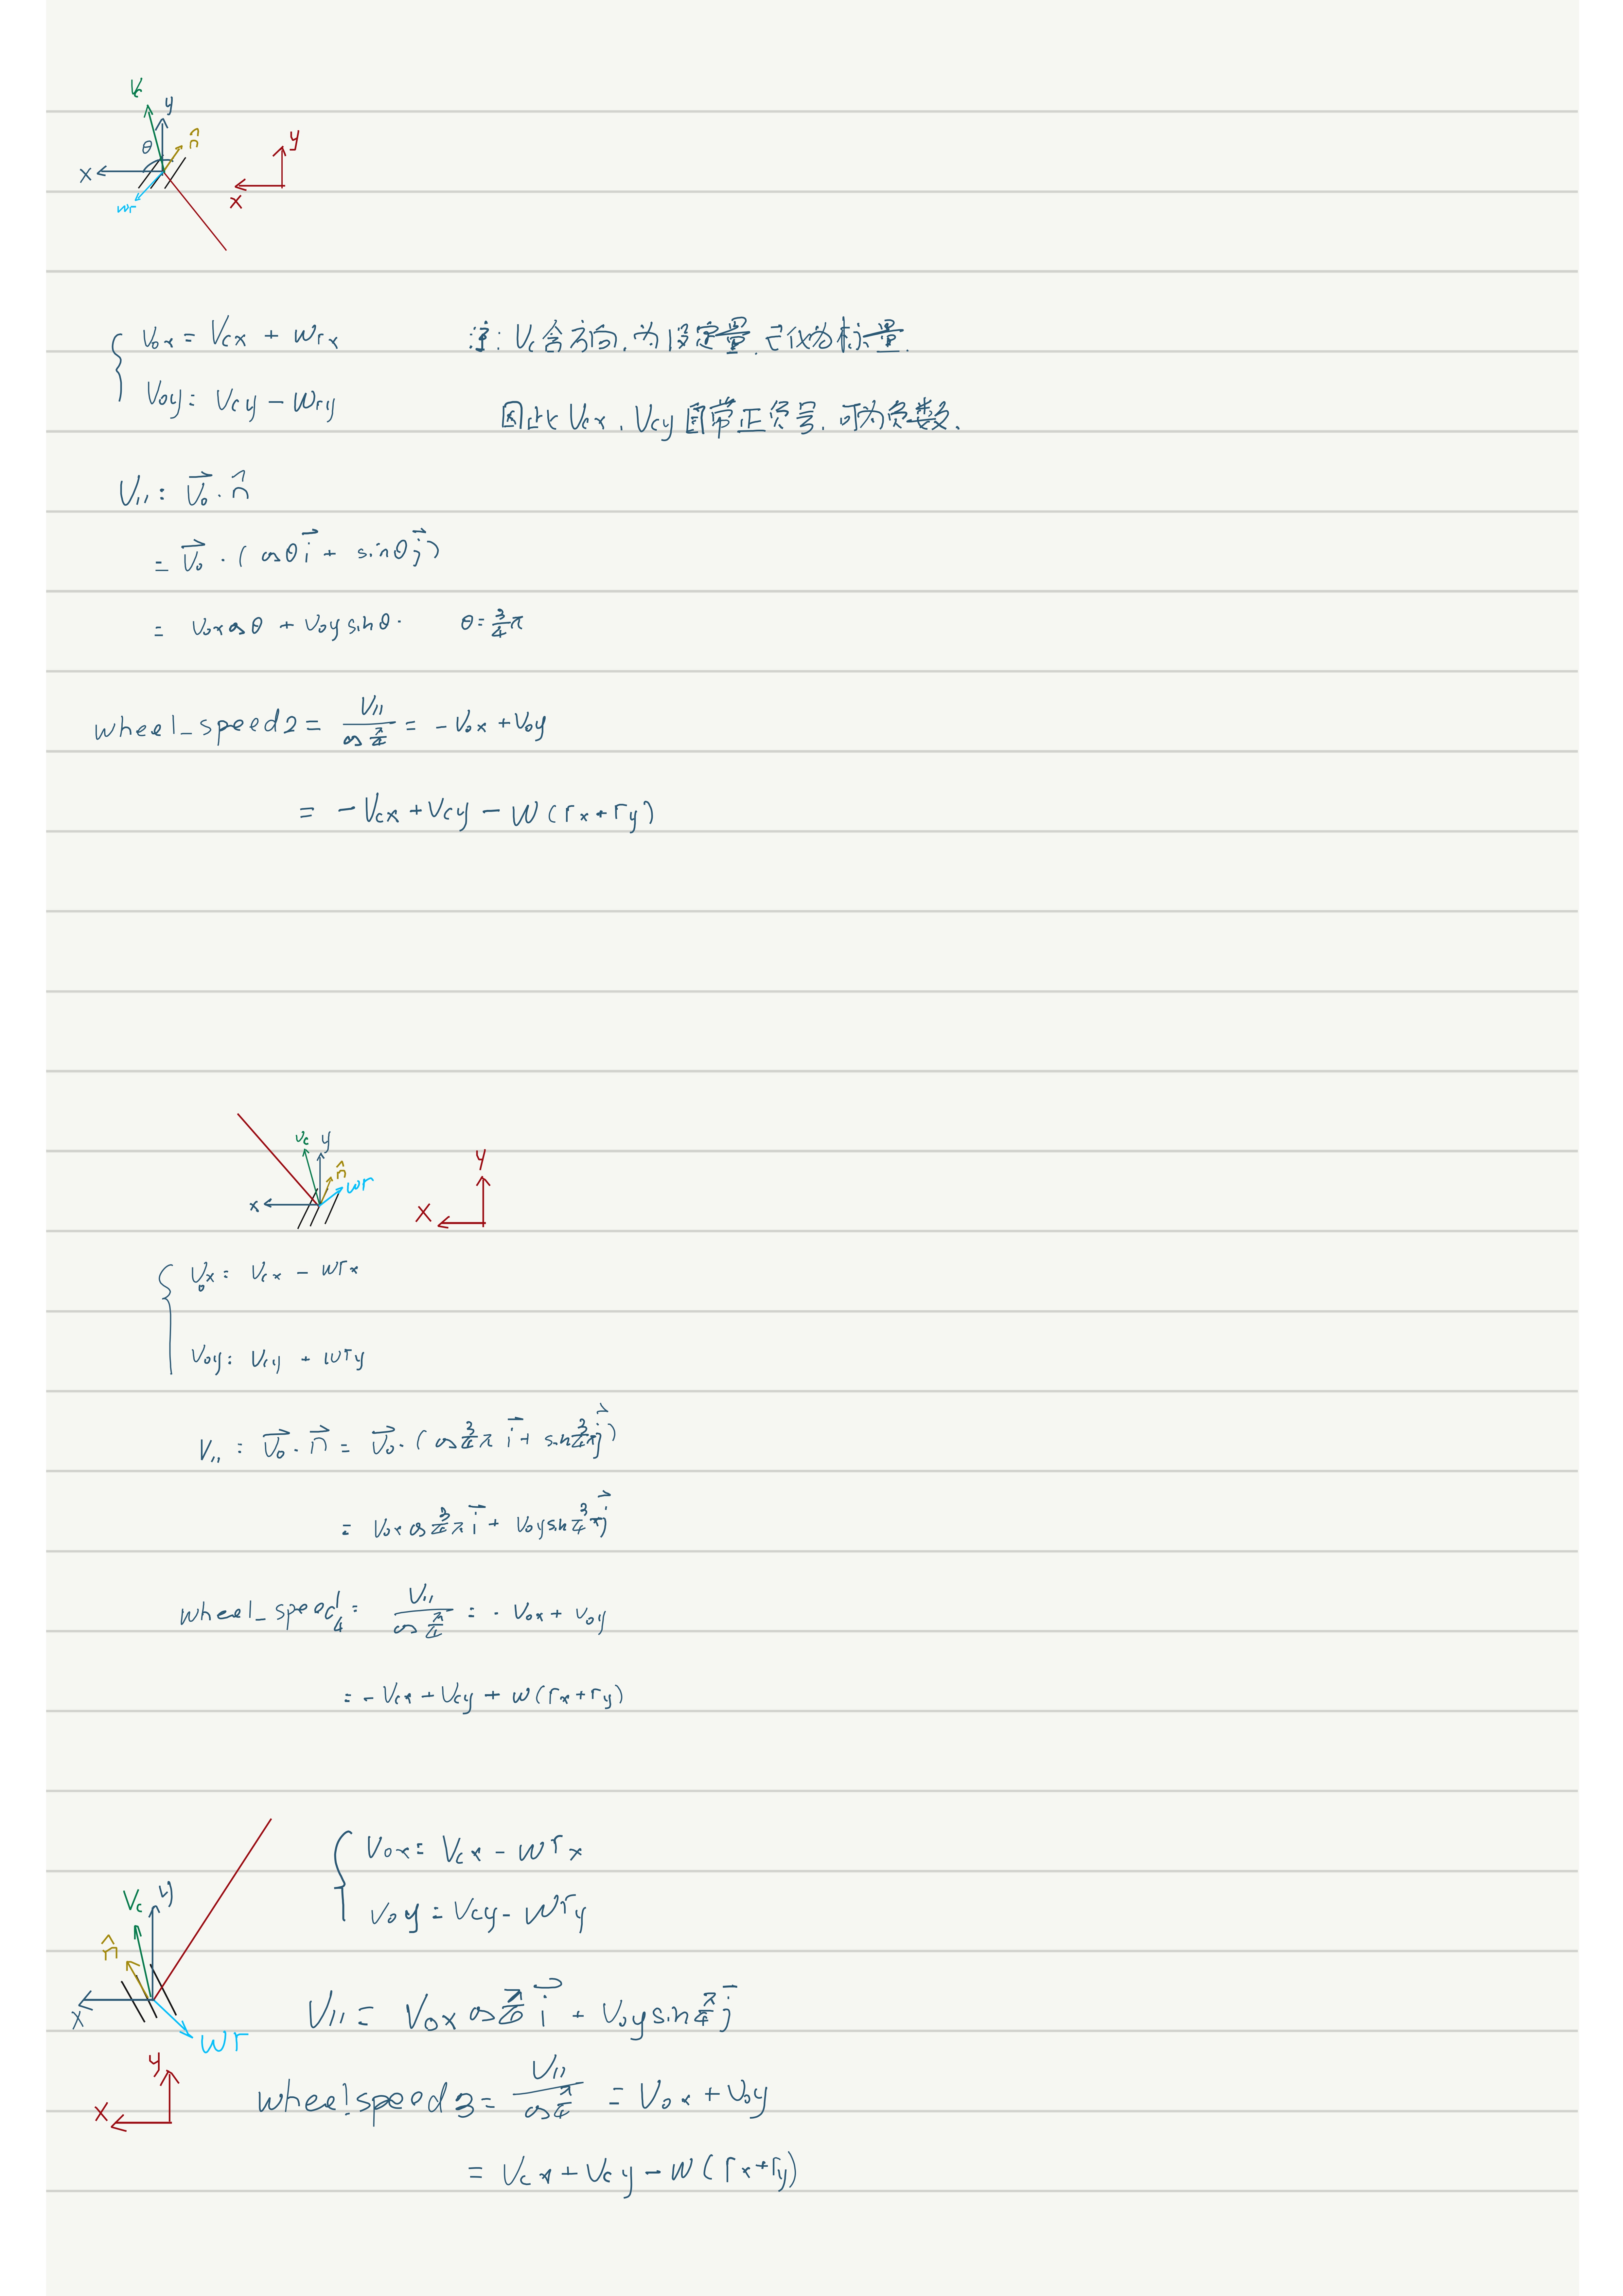 Vc
y
n̂
θ
x
wr
y
x
V₀x = Vcx + wrx 注: Vc含方向,为设定量,已化为标量.
V₀y = Vcy − wry 因此Vcx, Vcy自带正负号,可为负数.
V∥ = V⃗₀ · n̂
= V⃗₀ · (cosθ i⃗ + sinθ j⃗)
= V₀x cosθ + V₀y sinθ. θ = 3/4 π
wheel_speed2 = V∥ / cos π/4 = − V₀x + V₀y
= − Vcx + Vcy − w(rx + ry)
vc
y
n̂
wr
x
y
x
V₀x = Vcx − wrx
V₀y = Vcy + wry
V∥ = V⃗₀ · n⃗ = V⃗₀ · (cos 3/4 π i⃗ + sin 3/4 π j⃗)
= V₀x cos 3/4 π i⃗ + V₀y sin 3/4 π j⃗
wheel_speed4 = V∥ / cos π/4 = − V₀x + V₀y
= − Vcx + Vcy + w(rx + ry)
V₀x = Vcx − wrx
V₀y = Vcy − wry
Vc
y
n̂
x
wr
V∥ = V₀x cos π/4 i⃗ + V₀y sin π/4 j⃗
y
x
wheel_speed3 = V∥ / cos π/4 = V₀x + V₀y
= Vcx + Vcy − w(rx + ry)